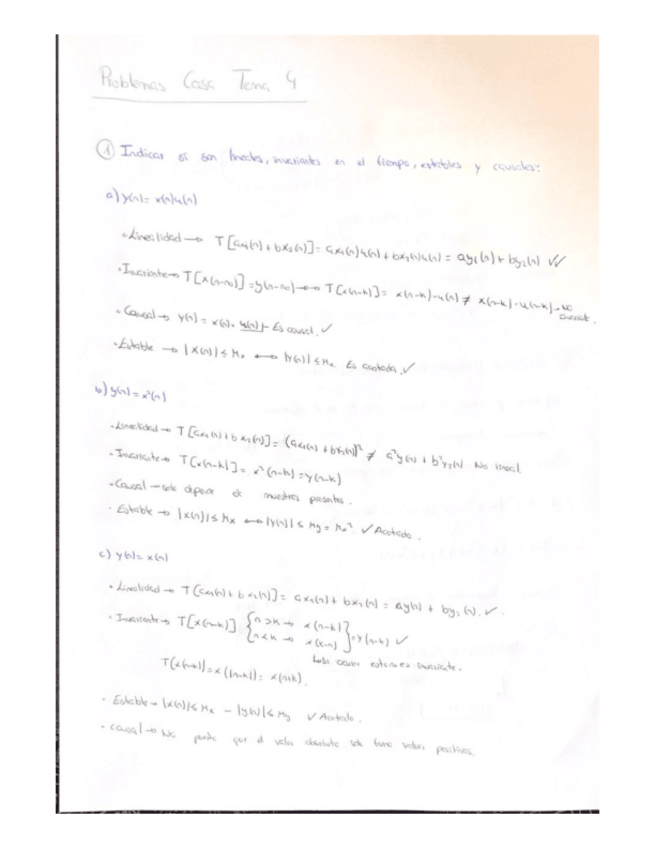 Problemas Casa Tema 4
① Indicar si son lineales, invariantes en el tiempo, estables y causales:
a) y(n) = x(n)u(n)
• Linealidad → T[ax₁(n) + bx₂(n)] = ax₁(n)u(n) + bx₂(n)u(n) = ay₁(n) + by₂(n) ✓✓
• Invariante → T[x(n-n₀)] = y(n-n₀) → T[x(n-k)] = x(n-k)·u(n) ≠ x(n-k)·u(n-k) → No
invariante.
• Causal → y(n) = x(n)· u(n) Es causal. ✓
• Estable → |x(n)| ≤ Mx ⟷ |y(n)| ≤ Mx Es acotada. ✓
b) y(n) = x²(n)
• Linealidad → T[ax₁(n) + bx₂(n)] = (ax₁(n) + bx₂(n))² ≠ a²y(n) + b²y₂(n) No lineal
• Invariante → T[x(n-k)] = x²(n-k) = y(n-k)
• Causal → solo depende de muestras presentes.
• Estable → |x(n)| ≤ Mx ⟷ |y(n)| ≤ My = Mx². ✓ Acotado.
c) y(n) = x(n)
• Linealidad → T[ax₁(n) + bx₂(n)] = ax₁(n) + bx₂(n) = ay(n) + by₂(n). ✓.
• Invariante → T[x(n-k)] { n>k → x(n-k)
n<k → x(k-n) } = y(n-k) ✓
entonces invariante.
T(x(n-k)) = x(|n-k|) = x(n+k).
• Estable → |x(n)| ≤ Mx – |y(n)| ≤ My ✓ Acotado.
• Causal → No que el valor absoluto solo valores positivos.